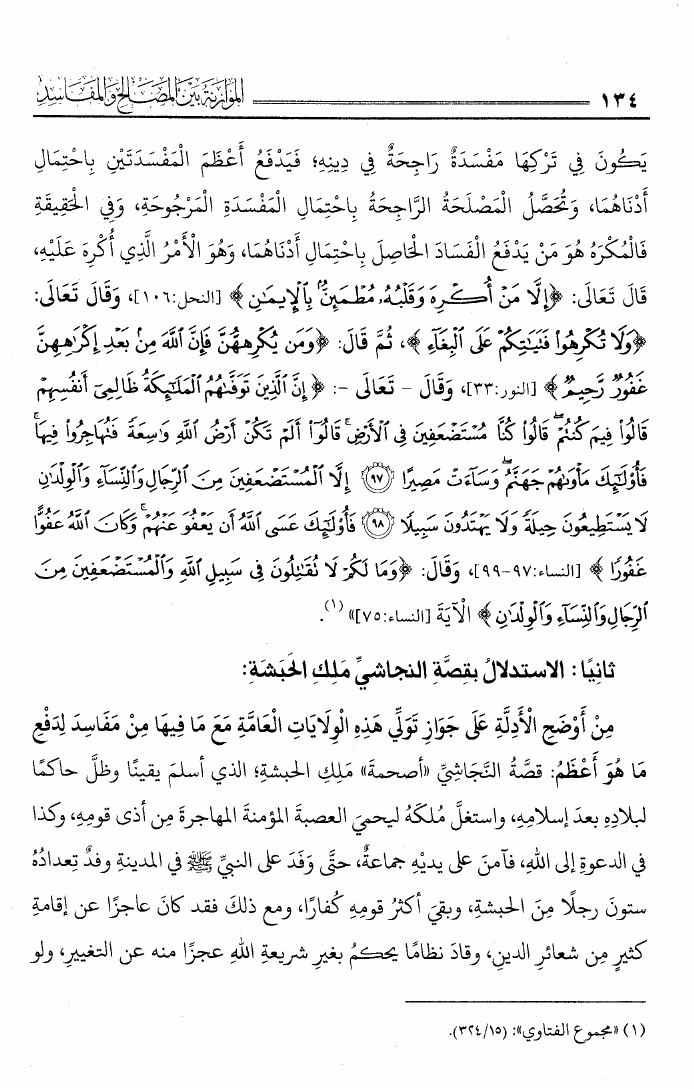 ١٣٤ الموازنة بين المصالح والمفاسد
يَكُونَ فِي تَرْكِهَا مَفْسَدَةٌ رَاجِحَةٌ فِي دِينِهِ؛ فَيَدْفَعُ أَعْظَمَ الْمَفْسَدَتَيْنِ بِاحْتِمَالِ
أَدْنَاهُمَا، وَتُحَصَّلُ الْمَصْلَحَةُ الرَّاجِحَةُ بِاحْتِمَالِ الْمَفْسَدَةِ الْمَرْجُوحَةِ، وَفِي الْحَقِيقَةِ
فَالْمُكْرَهُ هُوَ مَنْ يَدْفَعُ الْفَسَادَ الْحَاصِلَ بِاحْتِمَالِ أَدْنَاهُمَا، وَهُوَ الْأَمْرُ الَّذِي أُكْرِهَ عَلَيْهِ،
قَالَ تَعَالَى: ﴿إِلَّا مَنْ أُكْرِهَ وَقَلْبُهُۥ مُطْمَئِنٌّۢ بِٱلْإِيمَٰنِ﴾ [النحل:١٠٦]، وَقَالَ تَعَالَى:
﴿وَلَا تُكْرِهُوا۟ فَتَيَٰتِكُمْ عَلَى ٱلْبِغَآءِ﴾، ثُمَّ قَالَ: ﴿وَمَن يُكْرِههُّنَّ فَإِنَّ ٱللَّهَ مِنۢ بَعْدِ إِكْرَٰهِهِنَّ
غَفُورٌ رَّحِيمٌ﴾ [النور:٣٣]، وَقَالَ - تَعَالَى -: ﴿إِنَّ ٱلَّذِينَ تَوَفَّىٰهُمُ ٱلْمَلَٰٓئِكَةُ ظَالِمِىٓ أَنفُسِهِمْ
قَالُوا۟ فِيمَ كُنتُمْ ۖ قَالُوا۟ كُنَّا مُسْتَضْعَفِينَ فِى ٱلْأَرْضِ ۚ قَالُوٓا۟ أَلَمْ تَكُنْ أَرْضُ ٱللَّهِ وَٰسِعَةً فَتُهَاجِرُوا۟ فِيهَا ۚ
فَأُو۟لَٰٓئِكَ مَأْوَىٰهُمْ جَهَنَّمُ ۖ وَسَآءَتْ مَصِيرًا ﴿٩٧﴾ إِلَّا ٱلْمُسْتَضْعَفِينَ مِنَ ٱلرِّجَالِ وَٱلنِّسَآءِ وَٱلْوِلْدَٰنِ
لَا يَسْتَطِيعُونَ حِيلَةً وَلَا يَهْتَدُونَ سَبِيلًا ﴿٩٨﴾ فَأُو۟لَٰٓئِكَ عَسَى ٱللَّهُ أَن يَعْفُوَ عَنْهُمْ ۚ وَكَانَ ٱللَّهُ عَفُوًّا
غَفُورًا﴾ [النساء:٩٧-٩٩]، وَقَالَ: ﴿وَمَا لَكُمْ لَا تُقَٰتِلُونَ فِى سَبِيلِ ٱللَّهِ وَٱلْمُسْتَضْعَفِينَ مِنَ
ٱلرِّجَالِ وَٱلنِّسَآءِ وَٱلْوِلْدَٰنِ﴾ الْآيَةَ [النساء:٧٥]» (١).
ثانيًا: الاستدلالُ بقصَّةِ النجاشيِّ مَلِكِ الحَبَشَةِ:
مِنْ أَوْضَحِ الْأَدِلَّةِ عَلَى جَوَازِ تَوَلِّي هَذِهِ الْوِلَايَاتِ الْعَامَّةِ مَعَ مَا فِيهَا مِنْ مَفَاسِدَ لِدَفْعِ
مَا هُوَ أَعْظَمُ: قصَّةُ النَّجَاشِيِّ «أصحمة» مَلِكِ الحبشةِ؛ الذي أسلمَ يقينًا وظلَّ حاكمًا
لبلادِهِ بعدَ إسلامِهِ، واستغلَّ مُلكَهُ ليحميَ العصبةَ المؤمنةَ المهاجرةَ مِن أذى قومِهِ، وكذا
في الدعوةِ إلى اللهِ، فآمنَ على يديْهِ جماعةٌ، حتَّى وَفَدَ على النبيِّ ﷺ في المدينةِ وفدٌ تِعدادُهُ
ستونَ رجلًا مِنَ الحبشةِ، وبقيَ أكثرُ قومِهِ كُفارًا، ومع ذلكَ فقد كانَ عاجزًا عن إقامةِ
كثيرٍ مِن شعائرِ الدينِ، وقادَ نظامًا يحكمُ بغيرِ شريعةِ اللهِ عجزًا منه عن التغييرِ، ولو
(١) «مجموع الفتاوي»: (١٥/ ٣٢٤).